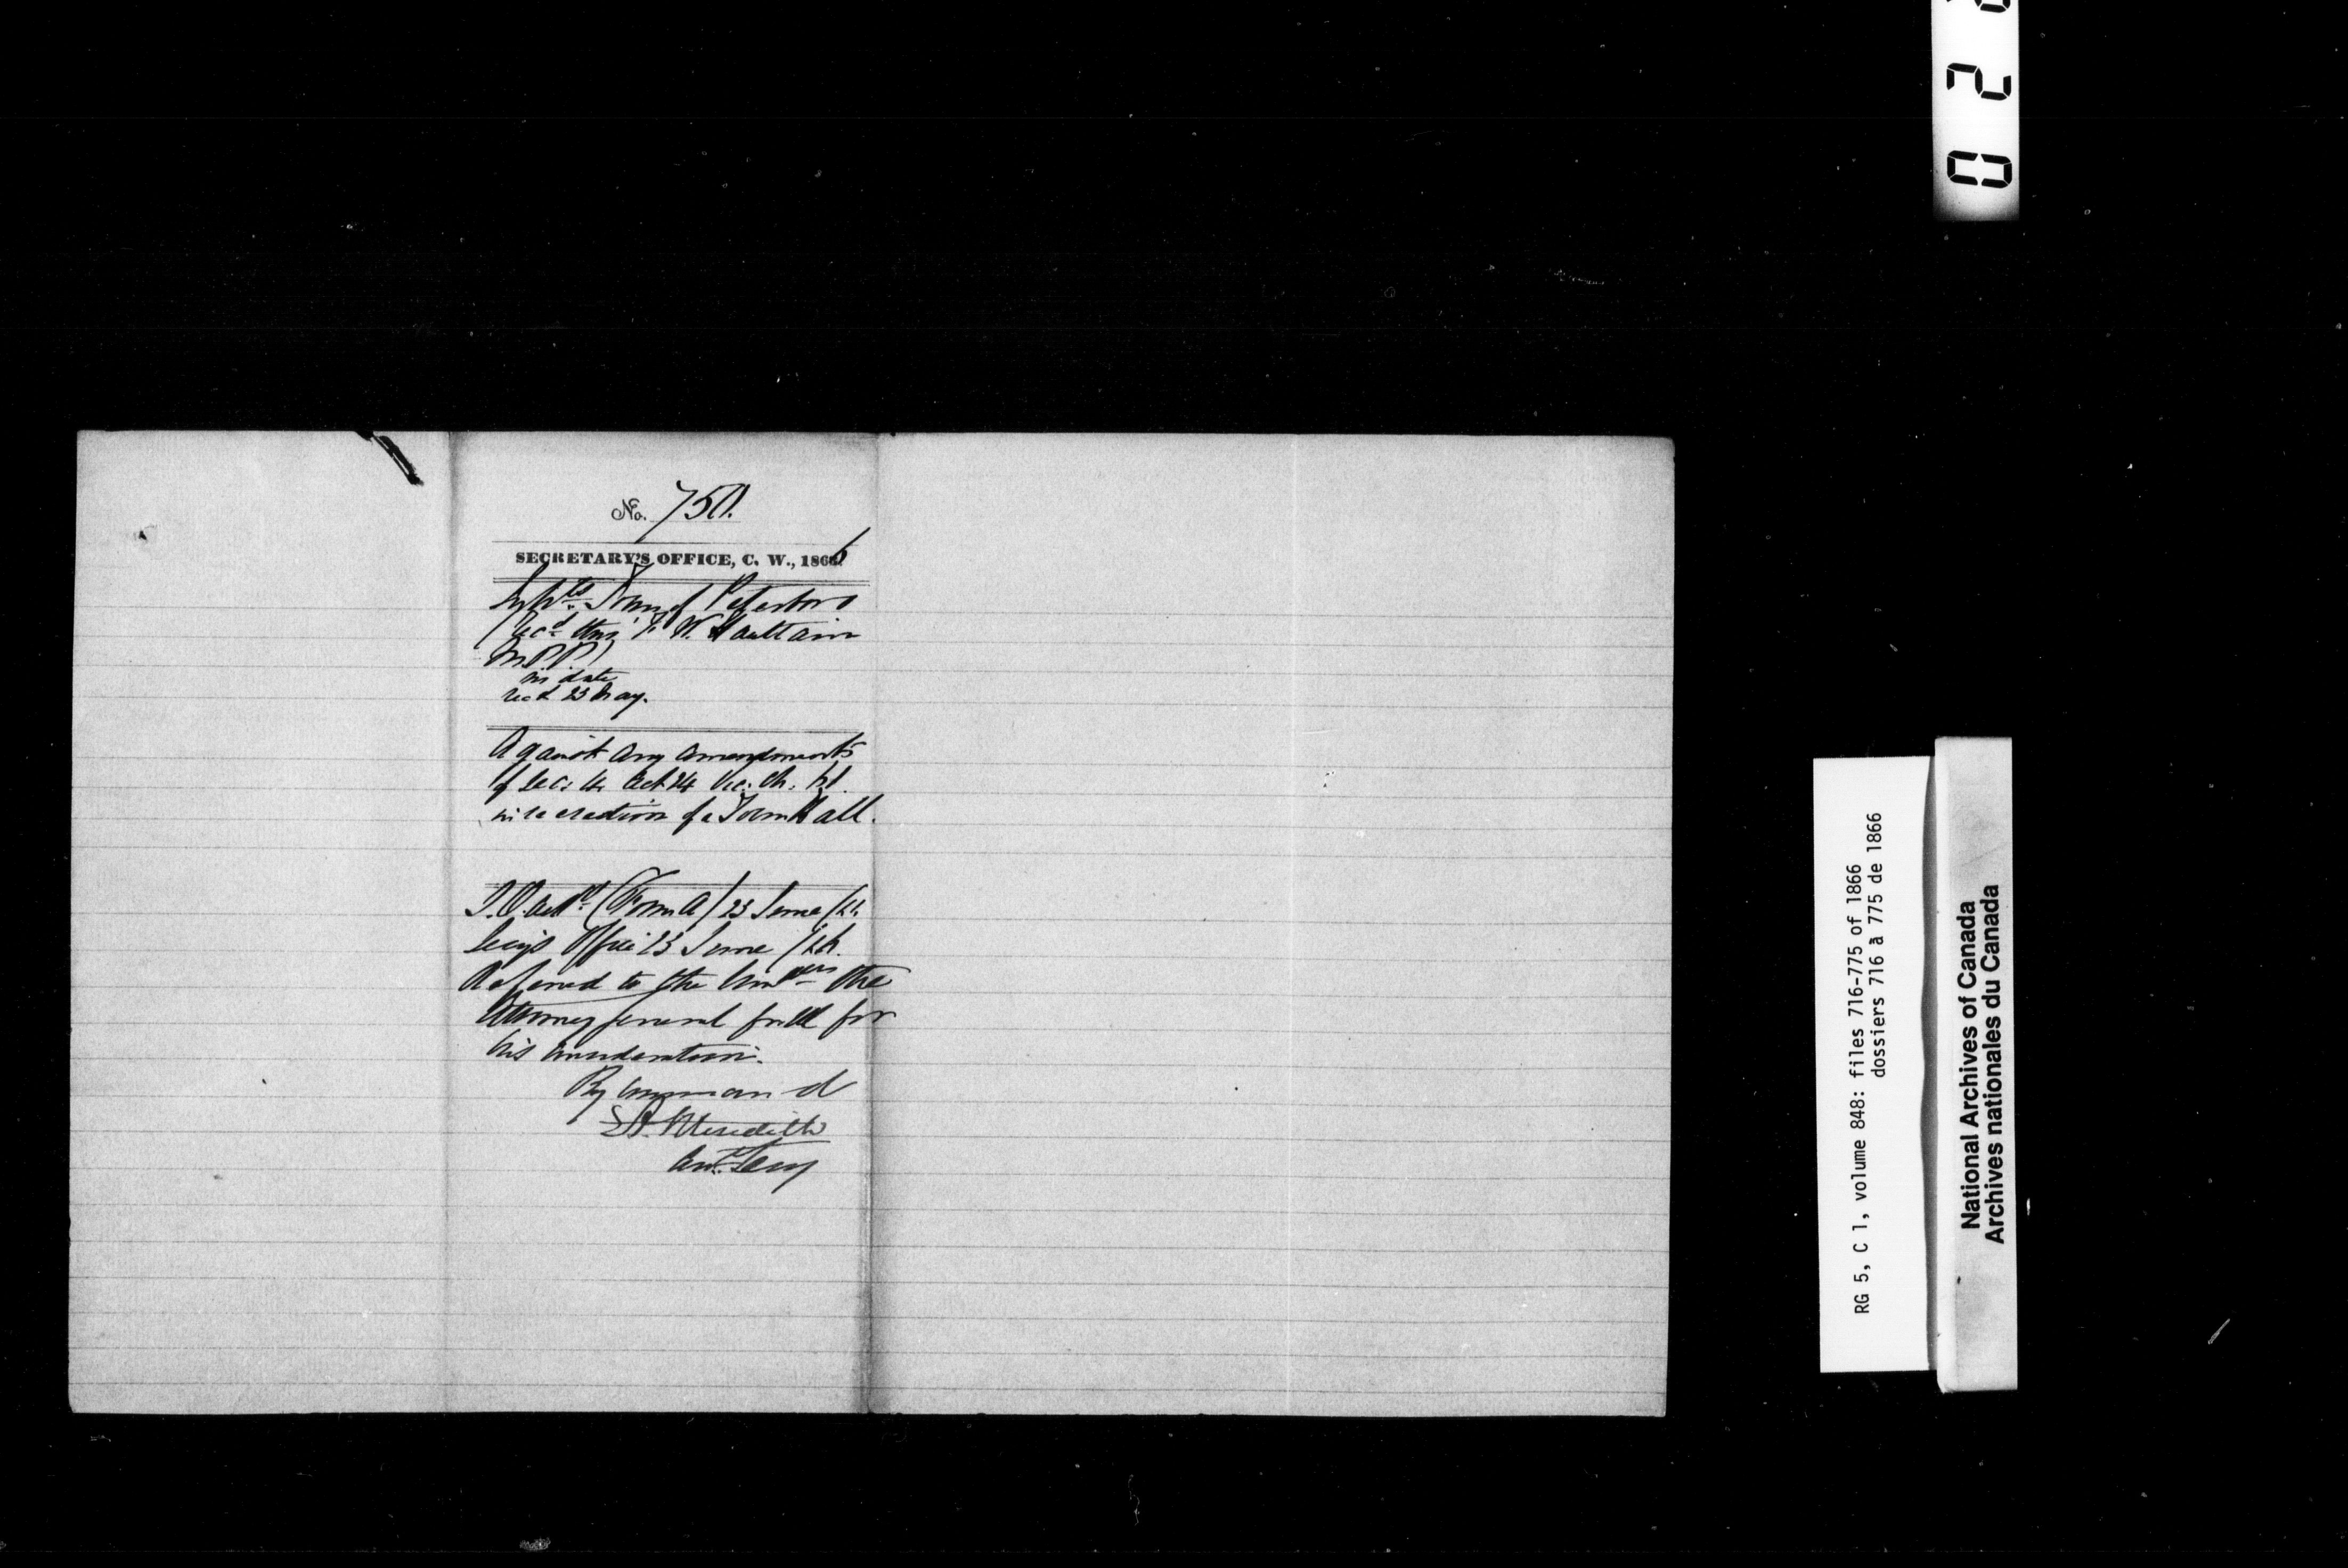 No. 750.
SECRETARY'S OFFICE, C. W., 1866
Inhbts Town of Peterboro
(recd thro' F. W. Haultain
M.P.P.)
no date
recd 23 May.
Against any amendments
of Sec: 4 Act 24 Vic: Ch. 61.
in re erection of a Town Hall.
(Form A) 23 June /66.
Secy's Office 23 June /66.
Referred to the Honble the
Attorney General for
his consideration.
By Command
E A Meredith
Asst Secy
0 2 2
RG 5, C 1, volume 848: files 716-775 of 1866
dossiers 716 à 775 de 1866
National Archives of Canada
Archives nationales du Canada